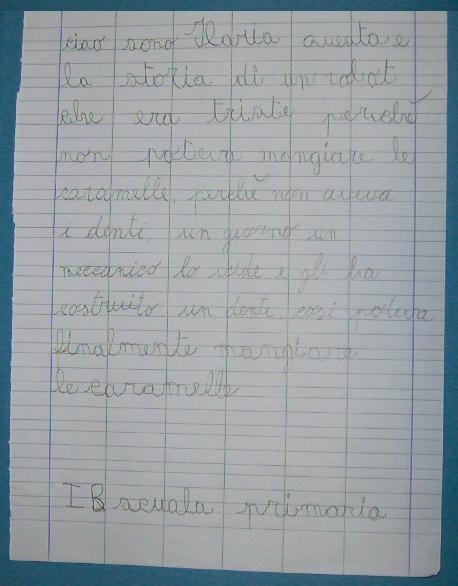 ciao sono Ilaria questa e
la storia di un robot
che era triste perchè
non poteva mangiare le
caramelle, perchè non aveva
i denti, un giorno un
meccanico lo vide e gli ha
costruito un dente, cosi poteva
finalmente mangiare
le caramelle
I B scuola primaria